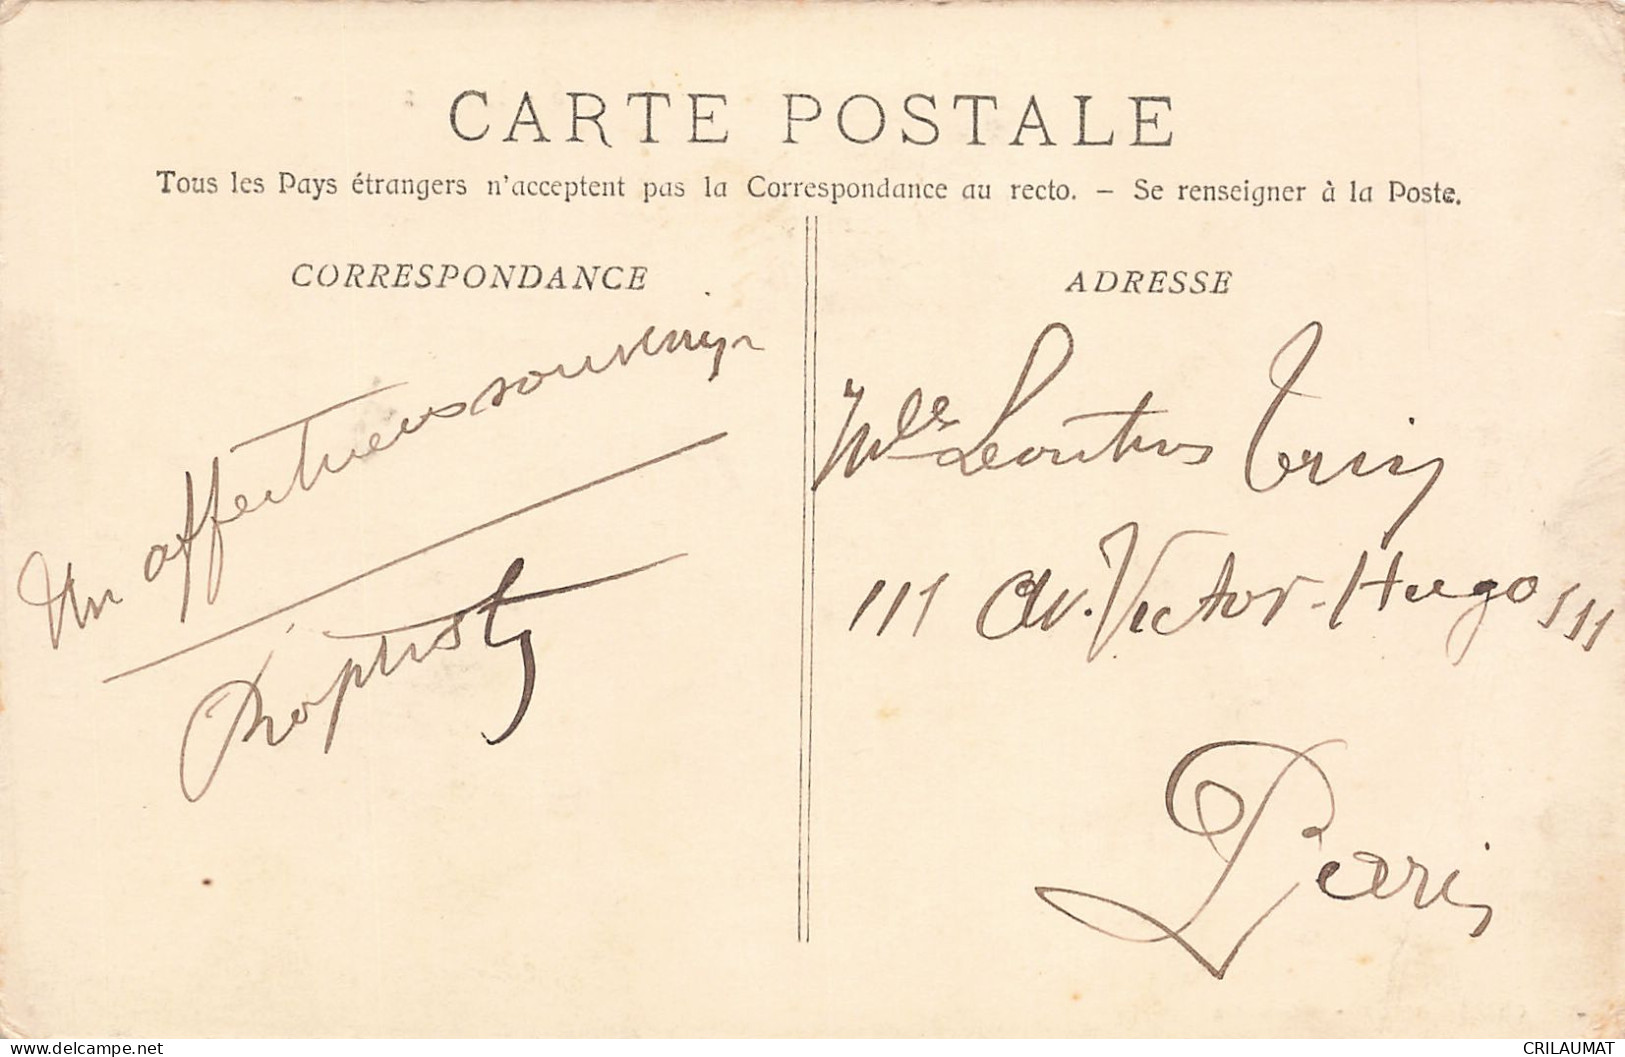 CARTE POSTALE
Tous les Pays étrangers n'acceptent pas la Correspondance au recto. – Se renseigner à la Poste.
CORRESPONDANCE
Un affectueux souvenir
Baptiste
ADRESSE
Mlle
111 Av. Victor-Hugo 111
Paris
www.delcampe.net
CRILAUMAT